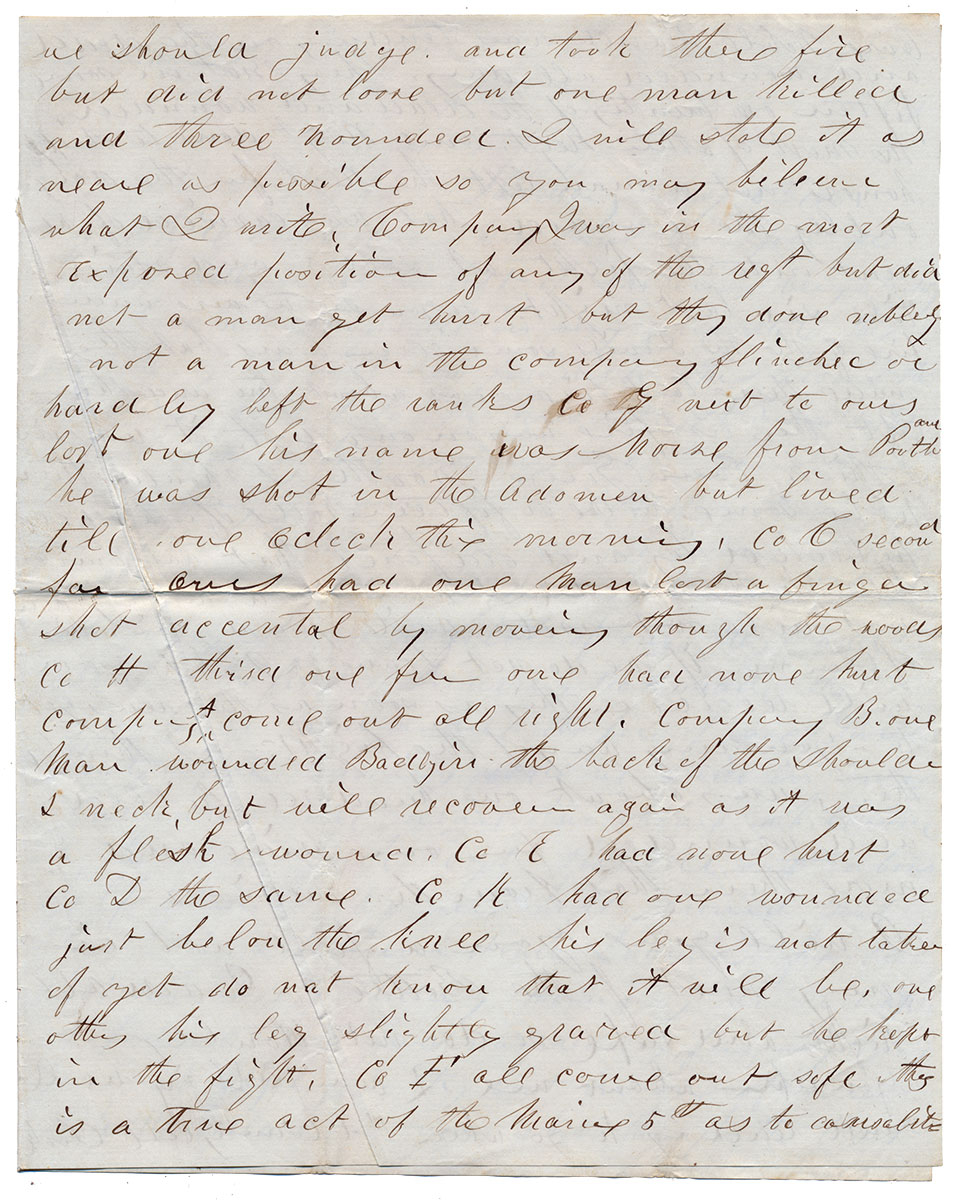 we should judge. and took there fire
but did not loose but one man killed
and three wounded. I will state it as
neare as possible so you may bileive
what I write, Company I was in the most
exposed position of any of the regt but did
not a man get hurt but they done nobley
not a man in the company flinched or
hardley left the ranks Co G next to ours
lost one his name was Morse from Portland
he was shot in the Adomen but lived
till one Oclock this morning, Co C second
from ours had one man lost a finger
shot accental by moveing though the woods
Co H third one from ours had none hurt
company A come out all right. Company B. one
man wounded Badly in the back of the shoulder
& neck, but will recover again as it was
a flesh wound. Co E had none hurt
Co D the same. Co K had one wounded
just below the knee his leg is not taken
of yet do not know that it will be, one
other his leg slightly grazed but he kept
in the fight, Co F all come out safe this
is a true act of the Maine 5th as to